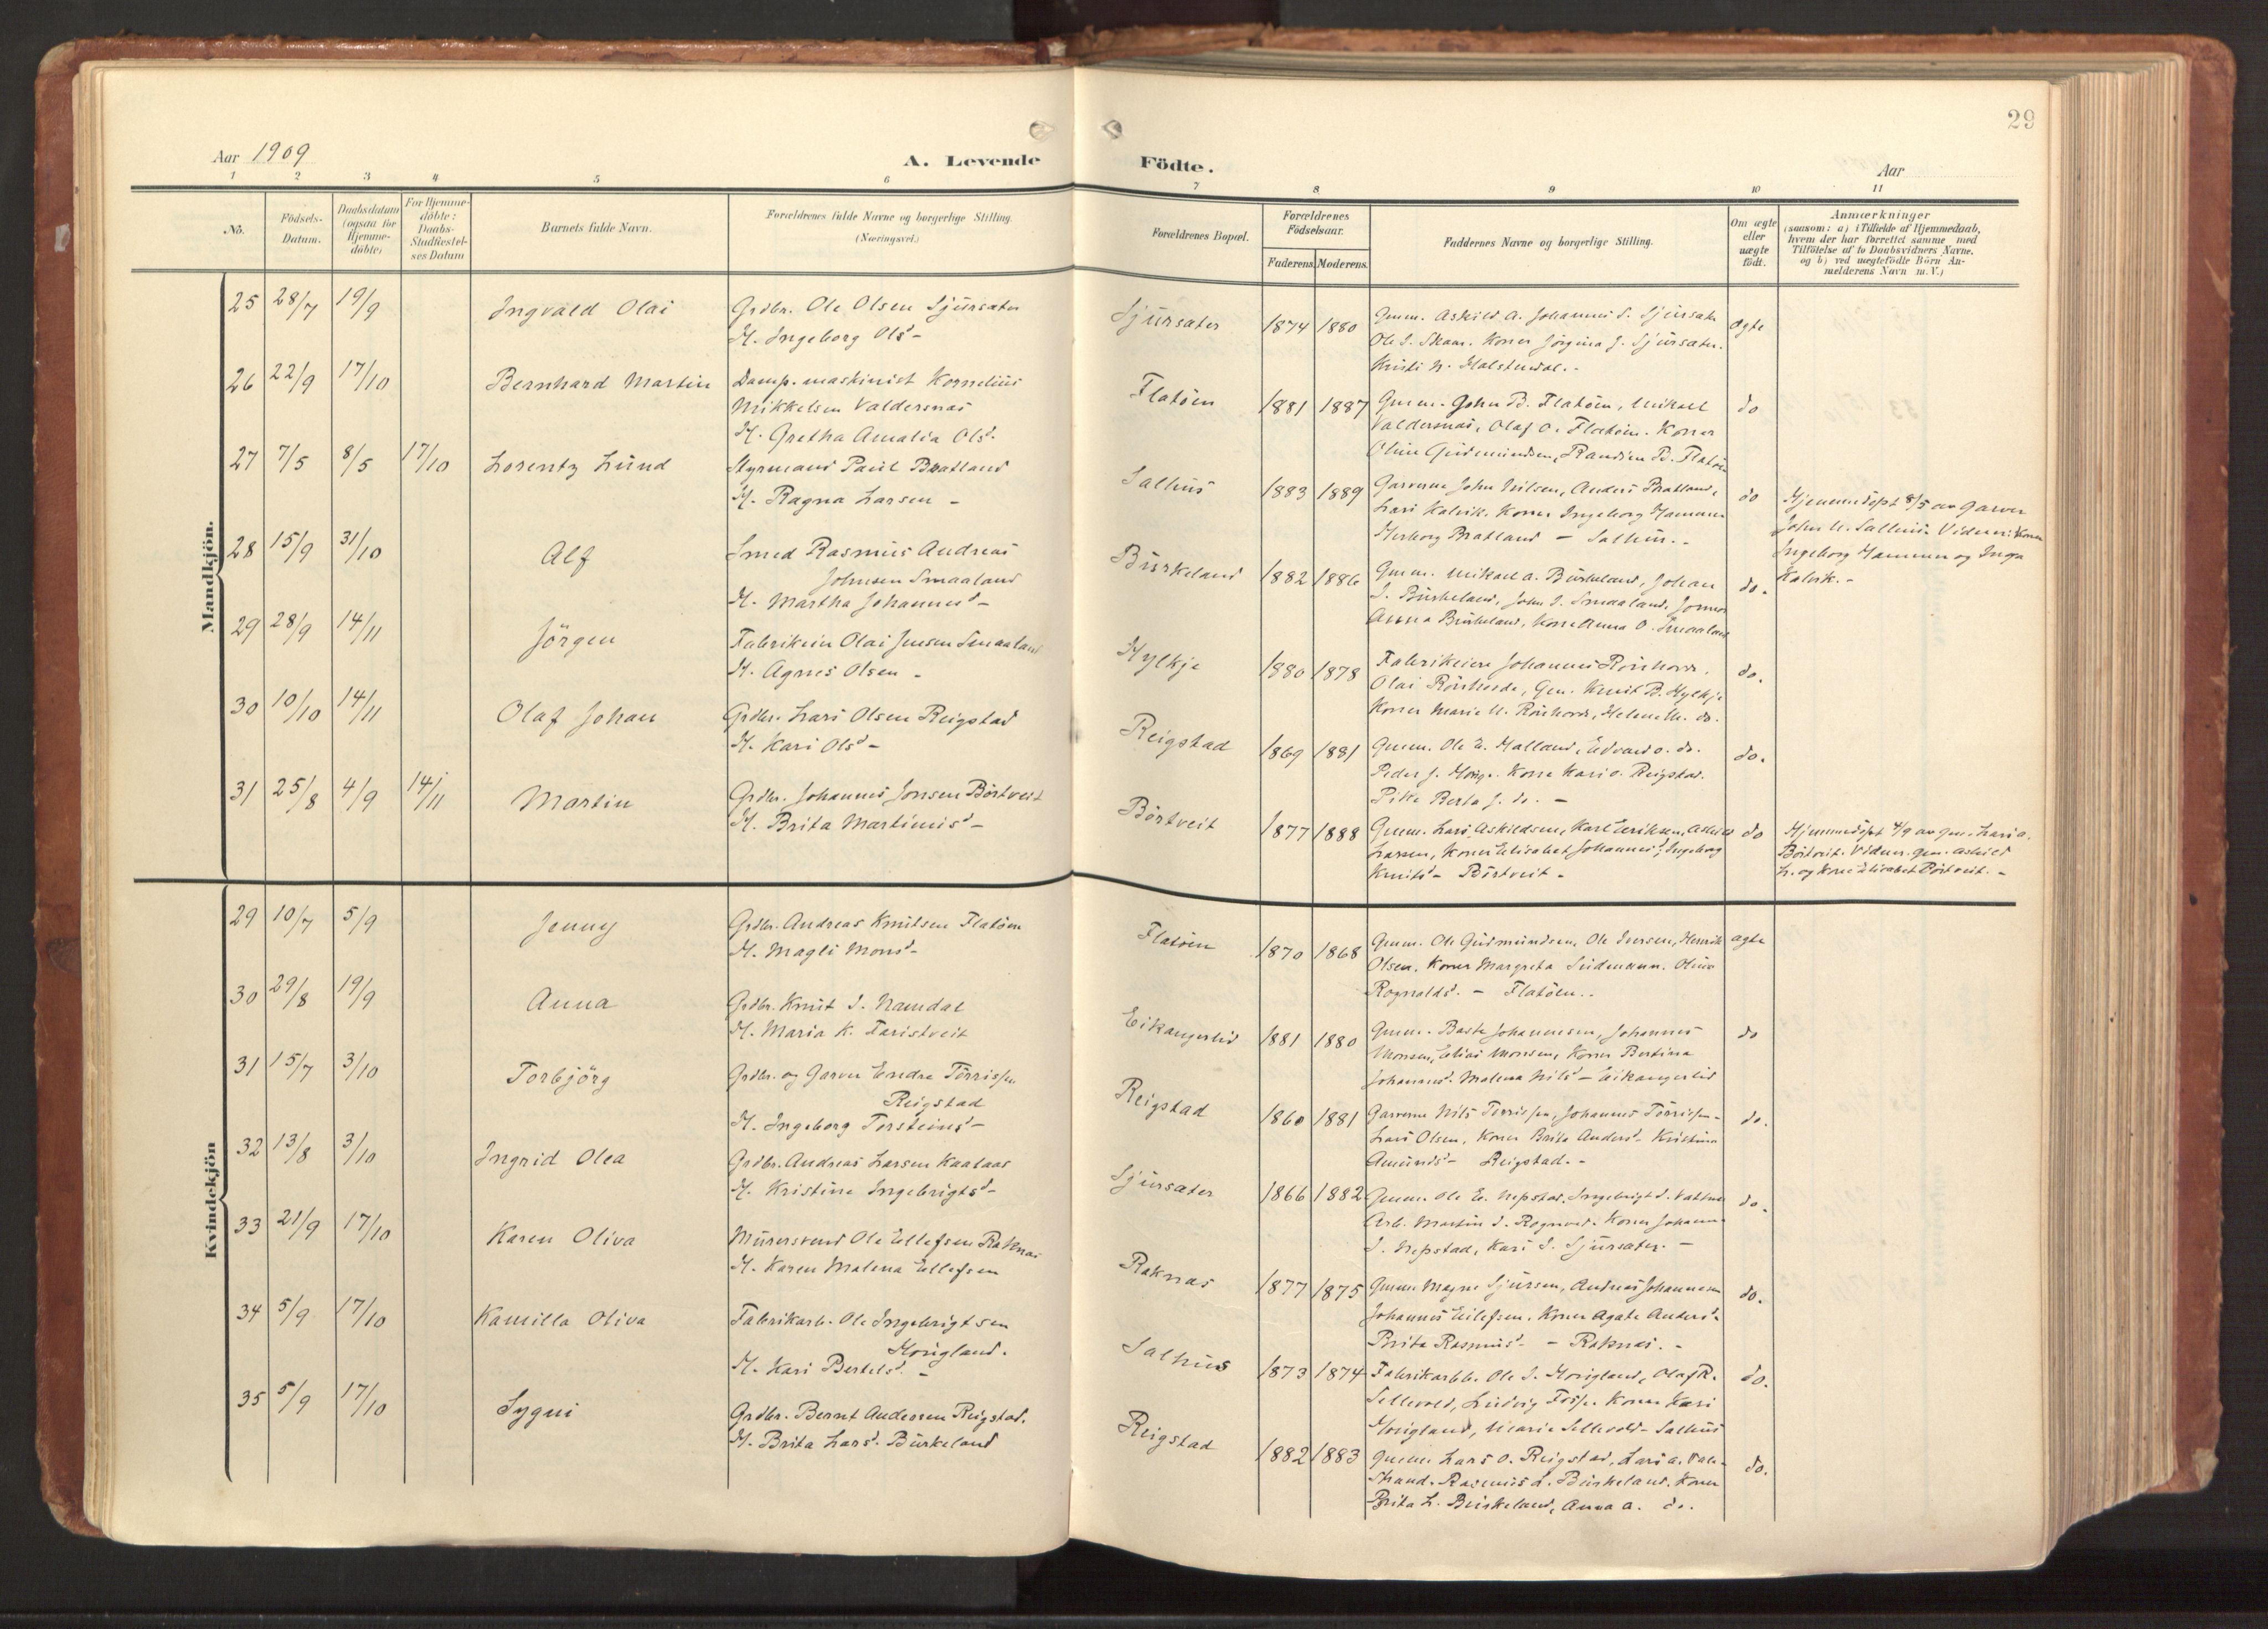 29
Aar 1909
A. Levende Födte.
Aar
1 2 3 4 5 6 7 8 9 10 11
No.
Födsels-Datum.
Daabsdatum (ogsaa for Hjemme-döbte)
For Hjemme-döbte: Daabs-Stadfæstel-ses Datum
Barnets fulde Navn.
Forældrenes fulde Navne og borgerlige Stilling.
(Næringsvei.)
Forældrenes Bopæl.
Forældrenes Födselsaar.
Faderens. Moderens.
Faddernes Navne og borgerlige Stilling.
Om ægte eller uægte födt.
Anmærkninger
(saasom: a) i Tilfælde af Hjemmedaab,
hvem der har forrettet samme med
Tilföielse af to Daabsvidners Navne,
og b) ved uægtefödte Börn An-
melderens Navn m. V.)
Mandkjön.
25 28/7 19/9 Ingvald Olai Grdbr. Ole Olsen Sjursæter
H. Ingeborg Olsd-
Sjursæter 1874 1880 Gmm. Askild A. Johannes S. Sjursæt
Ole S. Skam. Koner Jörgina J. Sjursæter.
Kristi N. Halstendal.-
ægte
26 22/9 17/10 Bernhard Martin Damp.maskinist Kornelius
Mikkelsen Valdersnæs
H. Gretha Amalia Olsd-
Flatöen 1881 1887 Gmm. John B. Flatöen, Mikael
Valdersnæs, Olaf O. Flatöen. Koner
Oline Gudmundsen, Randine B. Flatöen
do
27 7/5 8/5 17/10 Lorentz Lund Styrmand Paul Bratland
H. Ragna Larsen -
Salhus 1883 1889 Garverne John Nilsen, Anders Bratland,
Lars Kalvik. Koner Ingeborg Hammer
Herborg Bratland - Salhus.-
do
Hjemmedøpt 8/5 av garver
John N. Salhus. Vidner: Kone
Ingeborg Hammer og Inga
Kalvik.-
28 15/9 31/10 Alf Smed Rasmus Andreas
Johnsen Smaaland
H. Martha Johannesd-
Burkeland 1882 1886 Gmm. Mikael A. Burkeland, Johan
J. Burkeland, John J. Smaaland, Jomfr
Anna Burkeland, Kone Anna O. Smaaland
do.
29 28/9 14/11 Jörgen Fabrikeier Olai Jensen Smaaland
H. Agnes Olsen -
Hylkje 1880 1878 Fabrikeiere Johannes Rönhovde,
Olai Rönhovde, Gm. Knut B. Hylkje
Koner Marie N. Rönhovde, Helene M. do.
do.
30 10/10 14/11 Olaf Johan Grdbr. Lars Olsen Reigstad
H. Kari Olsd-
Reigstad 1869 1881 Gmm. Ole E. Halland, Edvard O. do.
Peder J. Kone Kari O. Reigstad.
Pike Berta J. do. -
do.
31 25/8 4/9 14/11 Martin Grdbr. Johannes Jonsen Börtveit
H. Brita Martinusd-
Börtveit 1877 1888 Gmm. Lars Askildsen, Karl Eriksen, Askild
Larsen, Koner Elisabet Johannesd, Ingeborg
Knutsd- Börtveit-
do
Hjemmedøpt 4/9 av gm. Lars A.
Börtveit. Vidner. gm. Askild
L. og kone Elisabet Börtveit.-
Kvindekjön
29 10/7 5/9 Jenny Grdbr. Andreas Knutsen Flatöen
H. Magli Monsd-
Flatöen 1870 1868 Gmm. Ole Gudmundsen, Ole Iversen, Henrik
Olsen. Koner Margreta Seidemann. Oline
Rognaldsd. - Flatöen.-
ægte
30 29/8 19/9 Anna Grdbr. Knut I. Namdal
H. Maria K. Faristveit
Eikangerlid 1881 1880 Gmm. Baste Johannesen, Johannes
Monsen, Elias Monsen, Koner Bertina
Johannesd. Malena Nilsd- Eikangerlid
do
31 15/7 3/10 Torbjörg Grdbr. og Garver Endre Torrissen
Reigstad
H. Ingeborg Torsteinsd-
Reigstad 1860 1881 Garverne Nils Torrissen, Johannes Torrissen-
Lars Olsen, Koner Brita Andersd- Kristina
Amundsd- Reigstad.-
do.
32 13/8 3/10 Ingrid Olea Grdbr. Andreas Larsen Kaalaas
H. Kristine Ingebrigtsd-
Sjursæter 1866 1882 Gmm. Ole E. Nepstad, Ingebrigt S.
Arb. Martin I. Koner Johanna
I. Nepstad, Kari I. Sjursæter. -
do.
33 21/9 17/10 Karen Oliva Murersvend Ole Ellefsen Raknæs
H. Karen Malena Ellefsen
Raknæs 1877 1875 Gmm Magne Sjursen, Andreas Johannesen
Johannes Eilefsen. Koner Agate Andersd-
Brita Rasmusd- - Raknæs.-
do.
34 5/9 17/10 Kamilla Oliva Fabrikarb. Ole Ingebrigtsen
Hougland.
H. Kari Bertelsd. -
Salhus 1873 1874 Fabrikarbb. Ole I. Hougland, Olaf R.
Sellevold, Ludvig Fosse. Koner Kari
Hougland, Marie Sellevold- Salhus
do.
35 5/9 17/10 Sygni Grdbr. Bernt Andersen Reigstad.
H. Brita Larsd. Burkeland
Reigstad 1882 1883 Gmm. Lars O. Reigstad, Lars A. Vale-
strand. Rasmus L. Burkeland. Koner
Brita L. Burkeland, Anna A. do.
do.